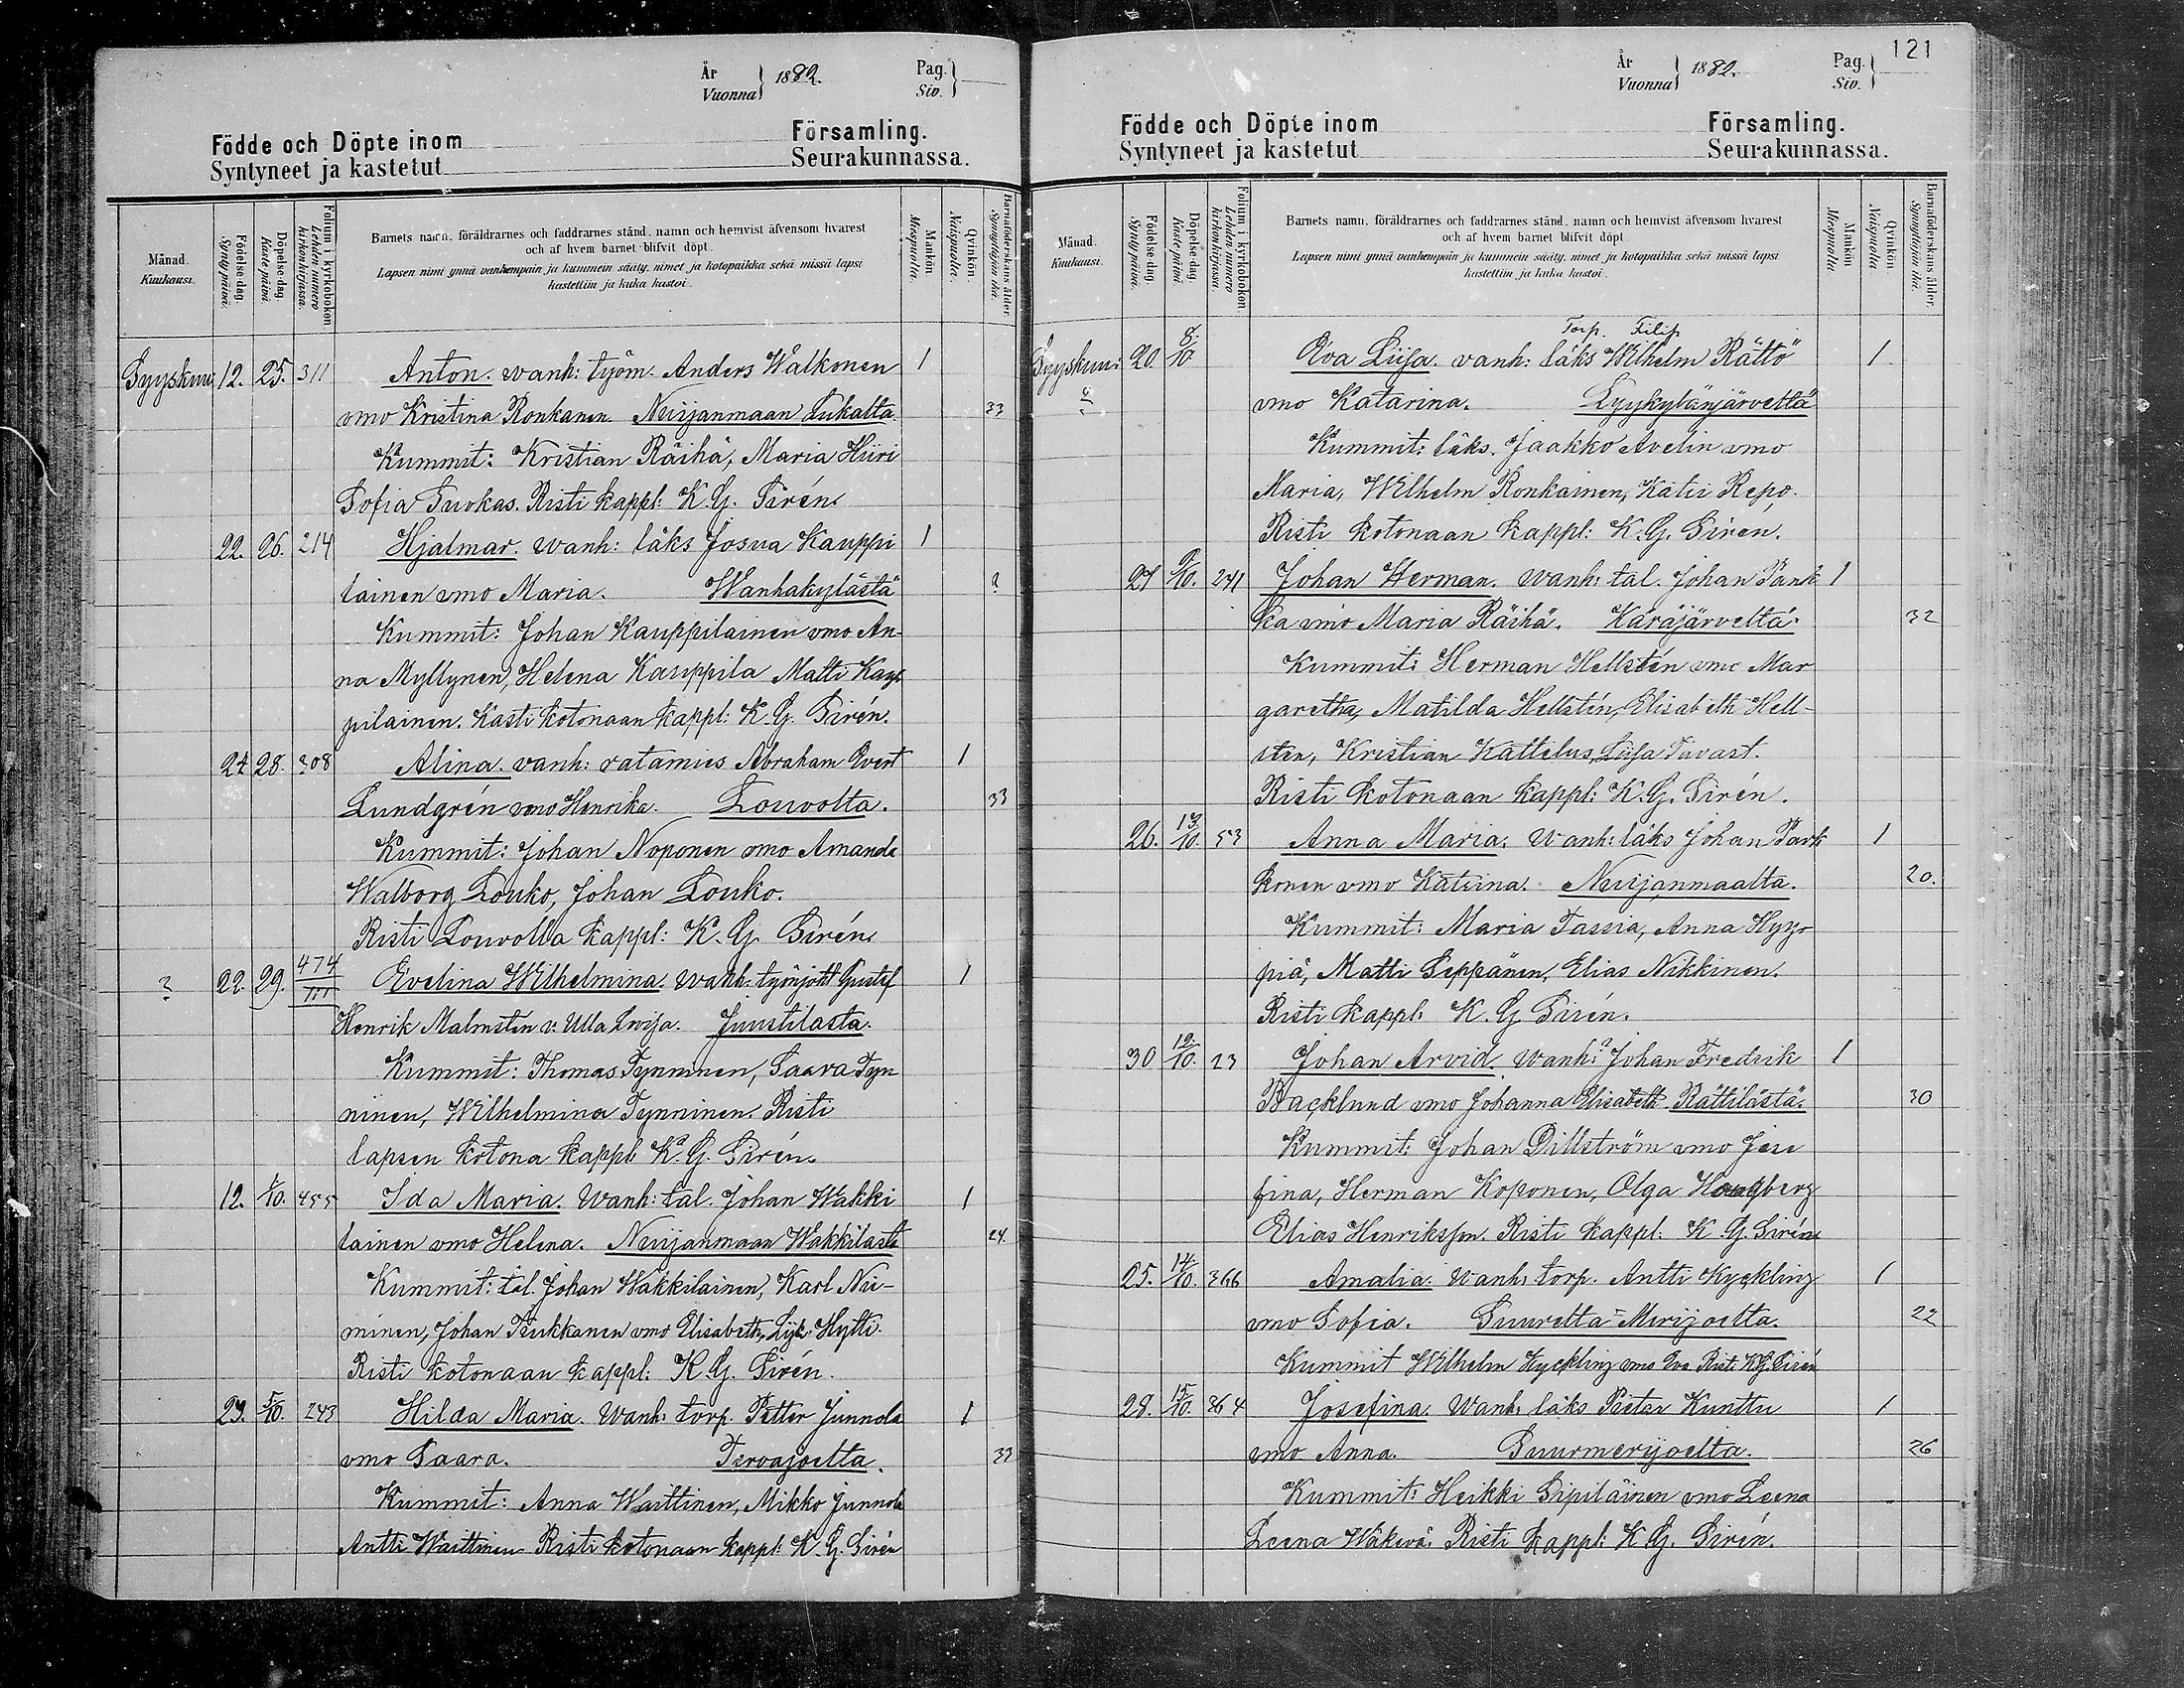 År
Vuonna } 1882.
Pag.
Siv. }
Födde och Döpte inom Församling.
Syntyneet ja kastetut Seurakunnassa.
Månad.
Kuukausi.
Födelse dag.
Syntypäivä.
Döpelse dag.
Kastepäivä.
Folium i kyrkobokon
Lehden numero
kirkonkirjassa.
Barnets namn, föräldrarnes och faddrarnes stånd, namn och hemvist äfvensom hvarest
och af hvem barnet blifvit döpt.
Lapsen nimi ynnä vanhempain ja kummein sääty, nimet ja kotopaikka sekä missä lapsi
kastettiin ja kuka kastoi.
Mankön
Miespuolia.
Qvinkön
Naispuolia.
Barnaföderskans ålder.
Synnyttäjän ikä.
Syyskuu 12. 25. 311 Anton. wanh: työm. Anders Walkonen 1
vmo Kristina Ronkanen. Nuijanmaan Lukalta. 33
Kummit: Kristian Räihä, Maria Hiiri
Sofia Suokas. Risti kappl: K. G. Sirén.
22. 26. 214 Hjalmar. wanh: läks Josua Kauppi 1
lainen vmo Maria. Wanhakylästä ?
Kummit: Johan Kauppilainen vmo An-
na Myllynen, Helena Kauppila Matti Kaup
pilainen. Kasti kotonaan kappl: K. G. Sirén.
24 28. 308 Alina. vanh: ratamies Abraham Evert 1
Lundgrén vmo Henrika. Louvolta. 33
Kummit: Johan Noponen vmo Amanda
Walborg Louko, Johan Louko.
Risti Louvolla kappl: K. G. Sirén.
? 22. 29. 474 III Evelina Wilhelmina. wanh: työnjoht Gustaf 1
Henrik Malmstén v: Ulla Lovisa. Juustilasta.
Kummit: Thomas Tynninen, Saara Tyn
ninen, Wilhelmina Tynninen. Risti
lapsen kotona kappl. K. G. Sirén.
12. 1/10. 455 Ida Maria. Wanh: tal. Johan Wakki 1
lainen vmo Helena. Nuijanmaan Wakkilasta 24.
Kummit: tal. Johan Wakkilainen, Karl Nie-
minen, Johan Tiukkanen vmo Elisabeth, Hytti.
Risti kotonaan kappl: K. G. Sirén.
23. 5/10. 243 Hilda Maria. Wanh: torp. Petter Junnola 1
vmo Saara. Tervajoelta. 33
Kummit: Anna Waittinen, Mikko Junnola
Antti Waittinen Risti kotonaan kappl: K. G. Sirén
121
År
Vuonna } 1882.
Pag.
Siv. }
Födde och Döpte inom Församling.
Syntyneet ja kastetut Seurakunnassa.
Månad.
Kuukausi.
Födelse dag.
Syntypäivä.
Döpelse dag.
Kastepäivä.
Folium i kyrkobokon
Lehden numero
kirkonkirjassa.
Barnets namn, föräldrarnes och faddrarnes stånd, namn och hemvist äfvensom hvarest
och af hvem barnet blifvit döpt.
Lapsen nimi ynnä vanhempain ja kummein sääty, nimet ja kotopaikka sekä missä lapsi
kastettiin ja kuka kastoi.
Mankön
Miespuolia.
Qvinkön
Naispuolia.
Barnaföderskans ålder.
Synnyttäjän ikä.
Torp. Filip
Syyskuu: 20. 8/10 Eva Liisa. vanh: läks Wilhelm Rättö 1
? vmo Katarina. Lyykylänjärveltä
Kummit: läks. Jaakko Avelin vmo
Maria, Wilhelm Ronkainen, Katri Repo.
Risti kotonaan kappl: K. G. Sirén.
27 9/10. 241 Johan Herman. wanh: tal. Johan Pank 1
ka vmo Maria Räihä. Käräjärveltä. 32
Kummit: Herman Hellstén vmo Mar
garetha, Matilda Hellstén, Elisabeth Hell-
stén, Kristian Kattelus, Liisa Tavast.
Risti kotonaan kappl: K. G. Sirén.
26. 13/10. 53 Anna Maria. Wanh: läks Johan Park 1
konen vmo Katrina. Nuijanmaalta. 20.
Kummit: Maria Tassia, Anna Hyyr
piä, Matti Seppänen, Elias Nikkinen.
Risti kappl. K. G. Sirén.
30 12/10. 23 Johan Arvid. Wanh:? Johan Fredrik 1
Backlund vmo Johanna Elisabeth Rättilästä. 30
Kummit: Johan Dillström vmo Jose
fina, Herman Koponen, Olga Hougberg
Elias Henriksson. Risti kappl. K. G. Sirén
25. 14/10. 366 Amalia. Wanh: torp. Antti Kyckling 1
vmo Sofia. Suurelta-Merijoelta. 22
Kummit Wilhelm Kyckling vmo Eva Risti K.G. Sirén
28. 15/10. 364 Josefina. Wanh: läks Pietar Kunttu 1
vmo Anna. Suurmerijoelta. 26
Kummit: Heikki Sipiläinen vmo Leena
Leena Wäkevä. Risti kappl: K. G. Sirén.